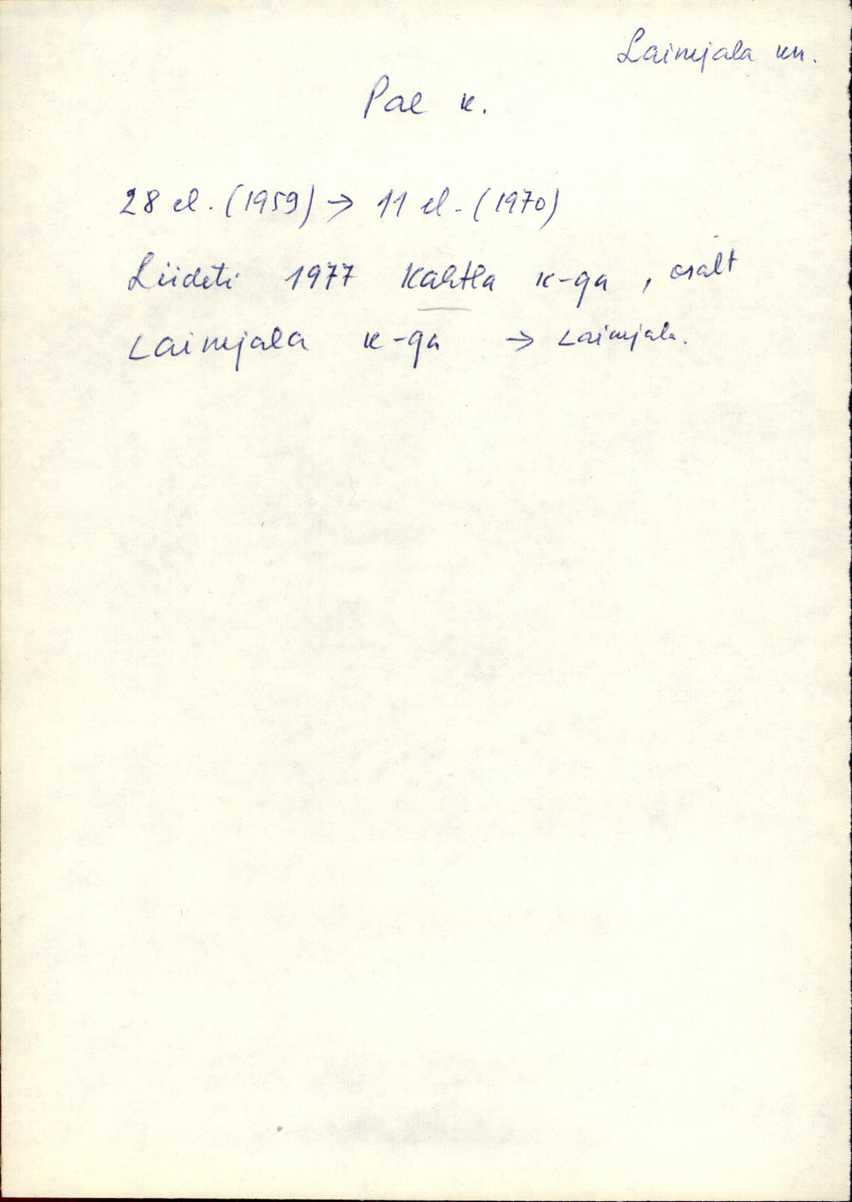 Laimjala kn.
Pae k.
28 el. (1959) → 11 el. (1970)
Liideti 1977 Kahtla k-ga, osalt
Laimjala k-ga → Laimjala.